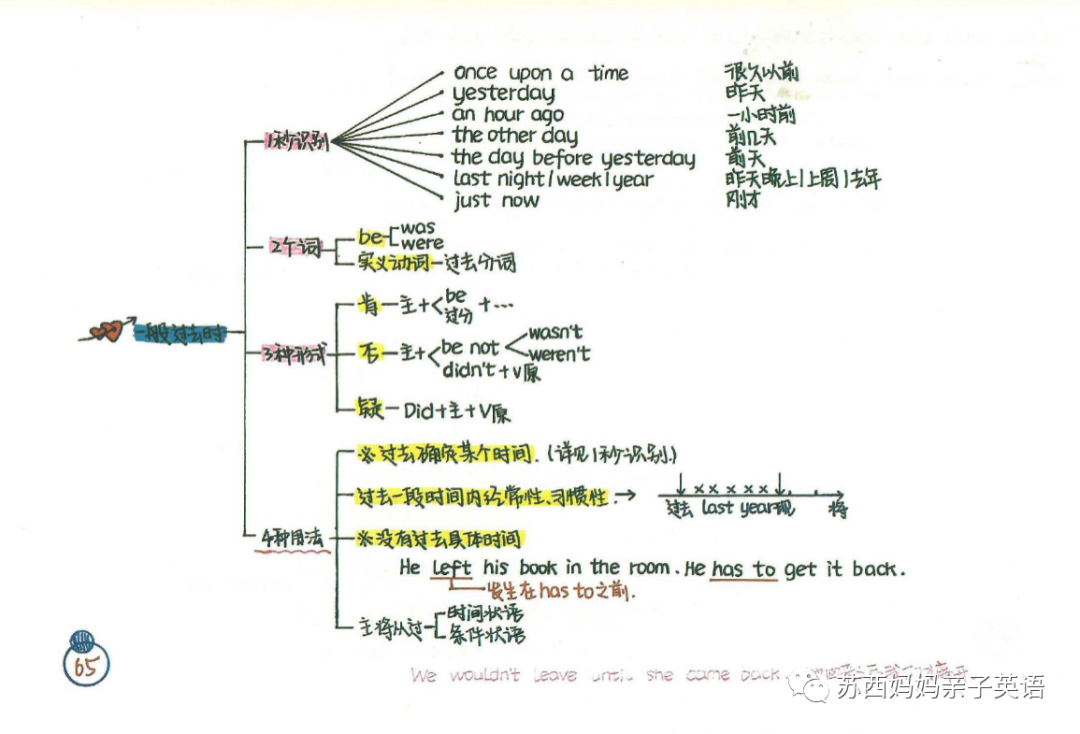 once upon a time 很久以前
yesterday 昨天
an hour ago 一小时前
1秒识别 the other day 前几天
the day before yesterday 前天
last night/week/year 昨天晚上/上周/去年
just now 刚才
2个词 be was
were
实义动词 过去分词
一般过去时
3种形式
肯 主+ be +…
过分
否 主+ be not wasn't
weren't
didn't+V原
疑 Did+主+V原
4种用法
※过去确定某个时间.(详见1秒识别.)
过去一段时间内经常性、习惯性. → ×××××
过去 last year 现 将
※没有过去具体时间
He left his book in the room. He has to get it back.
发生在has to之前.
主将从过 时间状语
条件状语
65
We wouldn't leave until she came back.
苏西妈妈亲子英语